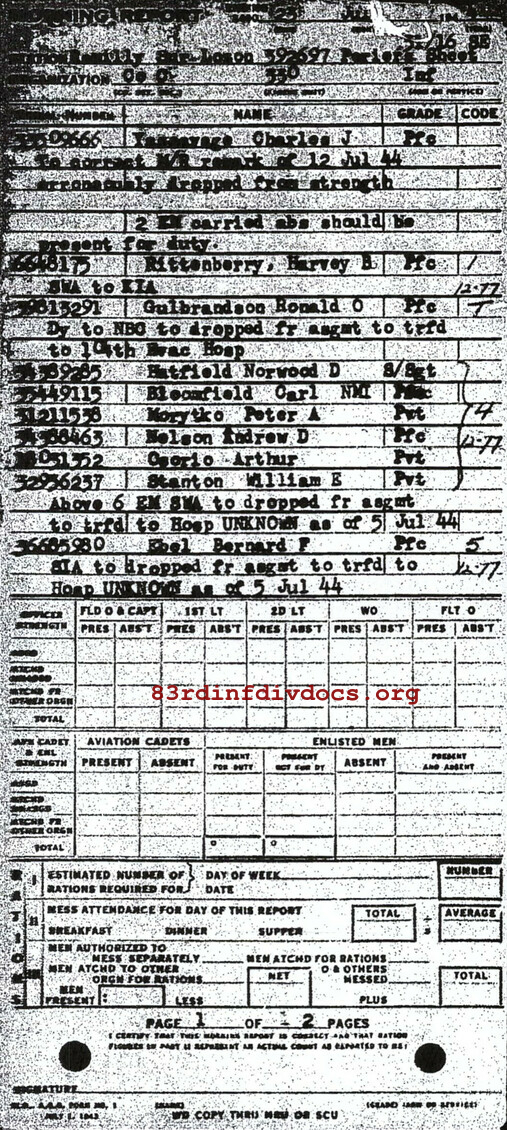 MORNING REPORT 25
STATION Remilly Sur Lozon 392697 Periers Sheet
ORGANIZATION Co C 330 Inf
SERIAL NUMBER NAME GRADE CODE
33509666 Charles J Pfc
To correct M/R remark of 12 Jul 44
erroneously dropped from strength
2 EM carried abs should be
present for duty.
6648175 Rittenberry, Harvey B Pfc 1
SWA to KIA 12-77
39813291 Gulbrandson Ronald O Pfc T
Dy to NBC to dropped fr asgmt to trfd
to 104th Evac Hosp
34389285 Hatfield Norwood D S/Sgt
35449115 Bloomfield Carl NMI
31211538 Morytko Peter A Pvt 4
34388463 Nelson Andrew D Pfc 12-77
Osorio Arthur Pvt
32936237 Stanton William E Pvt
Above 6 EM SWA to dropped fr asgmt
to trfd to Hosp UNKNOWN as of 5 Jul 44
36685980 Ebel Bernard F Pfc 5
SIA to dropped fr asgmt to trfd to 12-77
Hosp UNKNOWN as of 5 Jul 44
OFFICER STRENGTH FLD O & CAPT 1ST LT 2D LT WO FLT O
PRES ABS'T PRES ABS'T PRES ABS'T PRES ABS'T PRES ABS'T
ASGD
ATCHD UNASGD
ATCHD FR OTHER ORGN
TOTAL
83rdinfdivdocs.org
AVN CADET & ENL STRENGTH AVIATION CADETS ENLISTED MEN
PRESENT ABSENT PRESENT FOR DUTY PRESENT NOT FOR DY ABSENT PRESENT AND ABSENT
ASGD
ATCHD UNASGD
ATCHD FR OTHER ORGN
TOTAL
RATIONS
I ESTIMATED NUMBER OF RATIONS REQUIRED FOR DAY OF WEEK DATE NUMBER
II MESS ATTENDANCE FOR DAY OF THIS REPORT TOTAL ÷ 3 AVERAGE
BREAKFAST DINNER SUPPER
III MEN AUTHORIZED TO MESS SEPARATELY MEN ATCHD FOR RATIONS
MEN ATCHD TO OTHER ORGN FOR RATIONS NET O & OTHERS MESSED TOTAL
MEN PRESENT LESS PLUS
PAGE 1 OF 2 PAGES
I CERTIFY THAT THIS MORNING REPORT IS CORRECT AND THAT RATION
FIGURES IN PART III REPRESENT AN ACTUAL COUNT AS REPORTED TO ME:
SIGNATURE
W.D., A.G.O. FORM NO. 1 (NAME) (GRADE) (ARM OR SERVICE)
JULY 1, 1943 WD COPY THRU MRU OR SCU